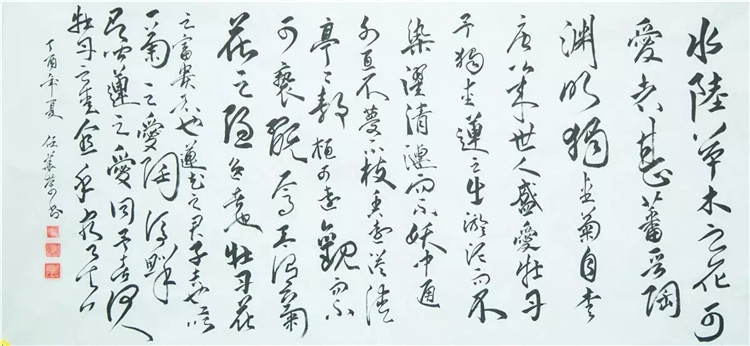 水陸草木之花可
愛者甚蕃晋陶
渊明獨愛菊自李
唐以来世人盛愛牡丹
予獨愛蓮之出淤泥而不
染濯清漣而不妖中通
外直不蔓不枝香遠溢清
亭々静植可遠觀而不
可褻翫焉予謂菊
花之隐逸者也牡丹花
之富贵者也蓮花之君子者也噫
菊之愛陶後鮮
有聞蓮之愛同予者何人
牡丹之愛宜乎衆矣
丁酉年夏 任華书